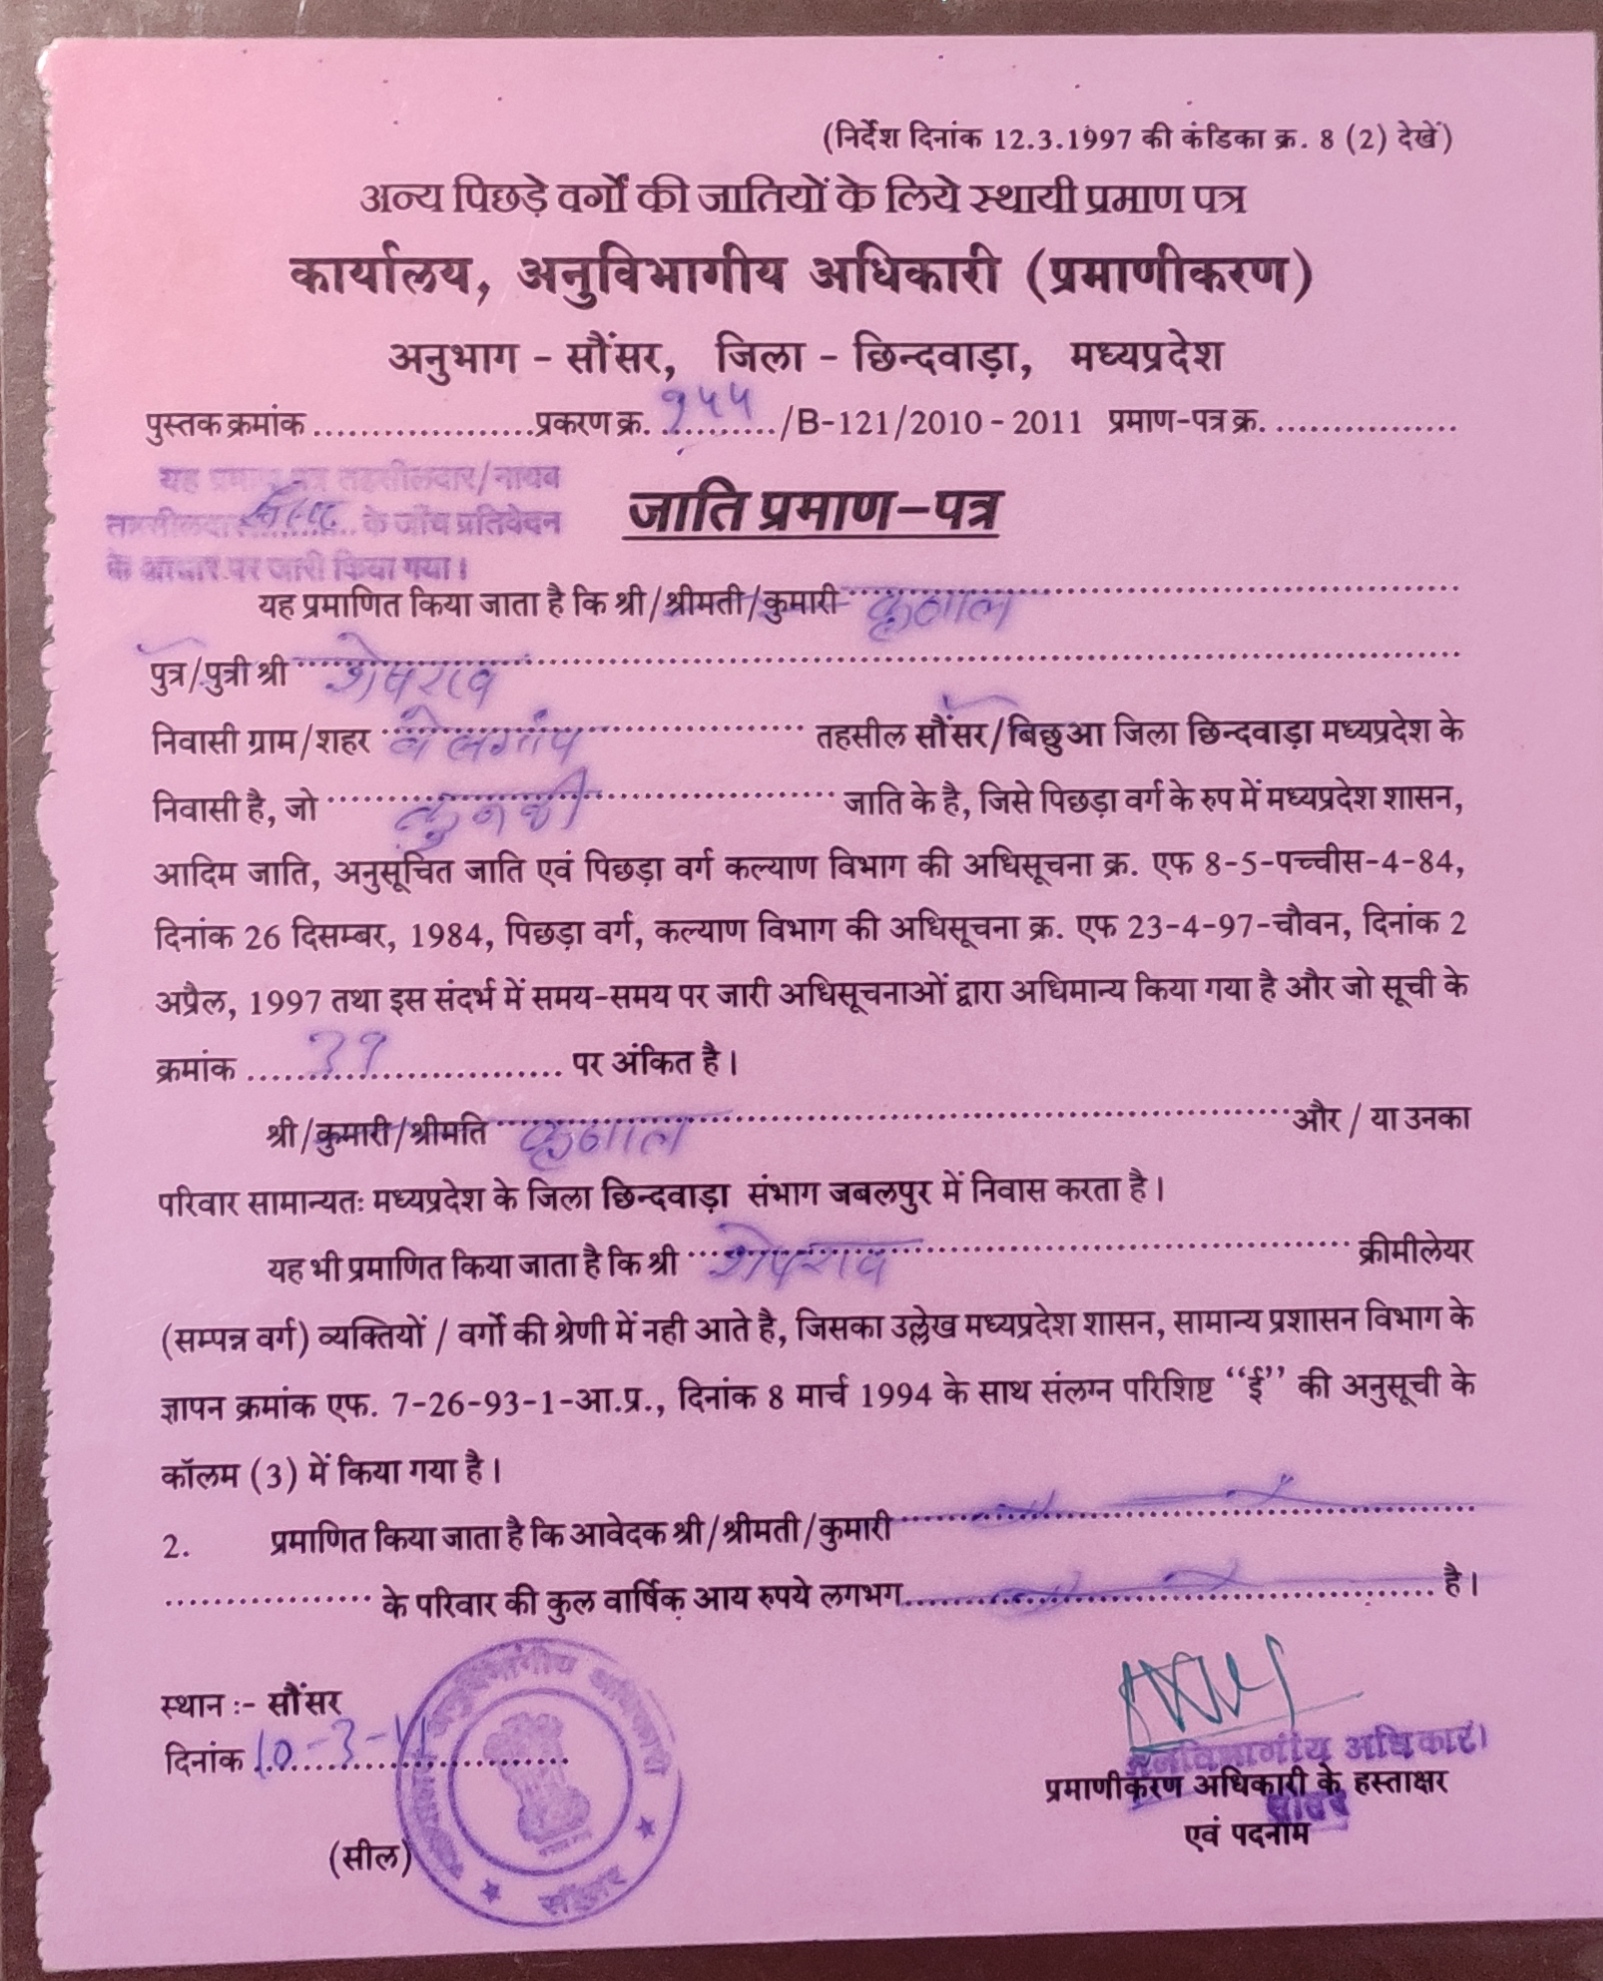 (निर्देश दिनांक 12.3.1997 की कंडिका क्र. 8 (2) देखें)
अन्य पिछड़े वर्गों की जातियों के लिये स्थायी प्रमाण पत्र
कार्यालय, अनुविभागीय अधिकारी (प्रमाणीकरण)
अनुभाग - सौंसर, जिला - छिन्दवाड़ा, मध्यप्रदेश
पुस्तक क्रमांक ................... प्रकरण क्र. १५५ /B-121/2010 - 2011 प्रमाण-पत्र क्र. ................
यह प्रमाण पत्र तहसीलदार/नायब
तहसीलदार ............ के जाँच प्रतिवेदन
के आधार पर जारी किया गया।
जाति प्रमाण-पत्र
यह प्रमाणित किया जाता है कि श्री/श्रीमती/कुमारी कृणाल
पुत्र/पुत्री श्री शेषराव
निवासी ग्राम/शहर बेलगांव तहसील सौंसर/बिछुआ जिला छिन्दवाड़ा मध्यप्रदेश के
निवासी है, जो कुनबी जाति के है, जिसे पिछड़ा वर्ग के रुप में मध्यप्रदेश शासन,
आदिम जाति, अनुसूचित जाति एवं पिछड़ा वर्ग कल्याण विभाग की अधिसूचना क्र. एफ 8-5-पच्चीस-4-84,
दिनांक 26 दिसम्बर, 1984, पिछड़ा वर्ग, कल्याण विभाग की अधिसूचना क्र. एफ 23-4-97-चौवन, दिनांक 2
अप्रैल, 1997 तथा इस संदर्भ में समय-समय पर जारी अधिसूचनाओं द्वारा अधिमान्य किया गया है और जो सूची के
क्रमांक ........................... पर अंकित है।
श्री/कुमारी/श्रीमति कृणाल और / या उनका
परिवार सामान्यतः मध्यप्रदेश के जिला छिन्दवाड़ा संभाग जबलपुर में निवास करता है।
यह भी प्रमाणित किया जाता है कि श्री शेषराव क्रीमीलेयर
(सम्पन्न वर्ग) व्यक्तियों / वर्गो की श्रेणी में नही आते है, जिसका उल्लेख मध्यप्रदेश शासन, सामान्य प्रशासन विभाग के
ज्ञापन क्रमांक एफ. 7-26-93-1-आ.प्र., दिनांक 8 मार्च 1994 के साथ संलग्न परिशिष्ट “ई” की अनुसूची के
कॉलम (3) में किया गया है।
2. प्रमाणित किया जाता है कि आवेदक श्री/श्रीमती/कुमारी ................
.................. के परिवार की कुल वार्षिक आय रुपये लगभग................ है।
स्थान :- सौंसर
दिनांक 10-3-11
(सील)
अनुविभागीय अधिकारी
सौंसर
अनुविभागीय अधिकारी
प्रमाणीकरण अधिकारी के हस्ताक्षर
सौंसर
एवं पदनाम